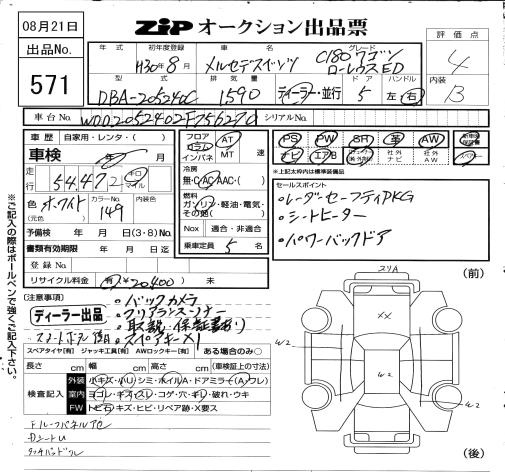 08月21日
ZIP オークション出品票
評価点
4
内装
B
出品No.
571
年式
初年度登録
H30年8月
車名
メルセデスベンツ
グレード
C180ワゴン
ローレウスED
型式
DBA-205240C
排気量
1590
ディーラー・並行
ドア
5
ハンドル
左・右
車台No.
WDD2052402F756270
シリアルNo.
車歴
自家用・レンタ・( )
車検
年 月
走行
54,472
キロ
マイル
色
ホワイト
(元色)
カラーNo.
149
内装色
予備検 年 月 日(3・8)No.
書類有効期限 年 月 日迄
登録No.
リサイクル料金 有 ¥20400) 未
フロア
コラム
インパネ
AT
MT
速
冷房
無・AC・AAC・( )
燃料
ガソリン・軽油・電気・
その他( )
Nox 適合・非適合
乗車定員 5 名
PS PW SH 革 AW
ナビ エアB
社外ナビ
社外AW
※上記太枠内は標準装備品
セールスポイント
・レーダーセーフティPKG
・シートヒーター
・パワーバックドア
※ご記入の際はボールペンで強くご記入下さい。
[注意事項]
ディーラー出品
・バックカメラ
・クリアランスソナー
・取説・保証書あり
・スペアキー×1
スペアタイヤ[有] ジャッキ工具[有] AWロックキー[有] ある場合のみ○
長さ cm 幅 cm 高さ cm (車検証上の寸法)
検査記入
外装 小キズ・ハリ・シミ・ホイルA・ドアミラー(A・ワレ)
室内 ヨゴレ・キズ・スレ・コゲ・穴・キレ・破れ・ウキ
FW トビ石・キズ・ヒビ・リペア跡・X要ス
DシートU
スリA
(前)
XX
W2
W2
W2
(後)